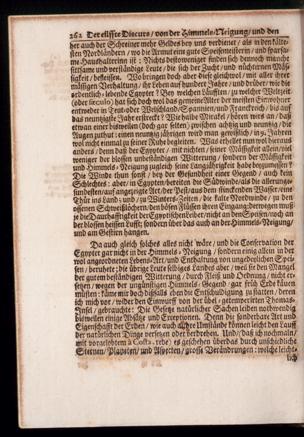 262 Der eilffte Discurs / von der Himmels-Neigung / und den
her auch der Schreiner mehr Geldes bey uns verdienet / als in den
Nordländern / wo die Armut eine gute Speisemeisterin / und
me Haushalterinn ist: Nichts destoweniger finden sich dennoch manche
fursame und beständige Leute / die sich der Zucht / und nüchternen Mäs-
sigkeit / befleissen. Wo bringen doch aber diese gleichwol / mit aller ihrer
mässigen Verhaltung / ihr Leben auf hundert Jahre / und drüber / wie die
ordentlich-lebende Egypter? Oder welchen
(oder seculo) hat sich doch wol das gemeine Alter der meisten Einwohner
entweder in Teutsch- oder Welschland / Spannien / und Franckreich / bis auf
das neuntzigste Jahr erstreckt? Wie balde
etwan einer bisweilen
Augen zuthut: einen neuntzig-jährigen wird man
wol nicht einmal zu seiner Ruhe begleiten. Was erhellet nun wol hieraus
anders / denn daß der Egypter / mit nichten / seiner Mässigkeit allein / viel
weniger der blossen unbeständigen Witterung / sondern der Mässigkeit
und Himmels-Neigung zugleich seine Langlebigkeit habe beyzumessen?
Die Winde thun sonst / bey der Gesundheit einer Gegend / auch kein
Schlechtes: aber / in Egypten / bereiten die Südwinde / als die
sundesten / auf angezeigte Art / der Pest / aus dem
Thür ins Land; und / zu Winters-Zeiten / die kalte Nordwinde / zu den
offenen Schweißlöchern / den bösen Flüssen ihren Eingang: deswegen muß
je die Daurhafftigkeit der Egyptischen Leiber / nicht an den Speisen / noch an
der blossen heissen Lufft; sondern über das auch an der Himmels-Neigung /
und am Gestirn hängen.
Da auch gleich solches alles nicht wäre / und die Conservation der
Egypter gar nicht in der Himmels-Neigung / sondern einig allein in der
wol angeordneten Lebens-Art / und Enthaltung von ungedeylichen Spei-
sen / beruhete; die übrige
der guten beständigen Witterung / durch Fleiß und Ordnung / nicht er-
setzen / wegen der ungünstigen Himmels-Gegend / gar früh Erde käuen
müsten: käme mir doch disfalls eben das Entschuldigung zu statten / deren
ich mich vor / wider den Einwurff von der übel-getemperirten Thomas-
Insel / gebrauchte: Die Gesetze natürlicher Sachen leiden nothwendig
bisweilen einige Absätze und Exceptionen. Denn die sonderbare Art und
Eigenschafft der Erden / wie auch andre Umstände können leicht den Lauff
der natürlichen Dinge versetzen oder verdrehen. Und / daß ich nochmals
mit vorerlobtem à Costa rede / es geschehen überdas durch unschiedliche
Sternen / Planeten / und Aspecten / grosse Veränderungen: welche leicht-
lich